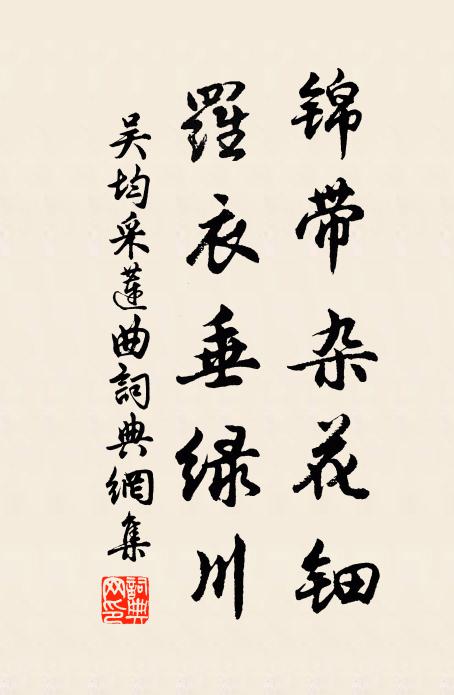 锦带杂花钿
羅衣垂绿川
吴均采蓮曲詞典網集
詞典网印